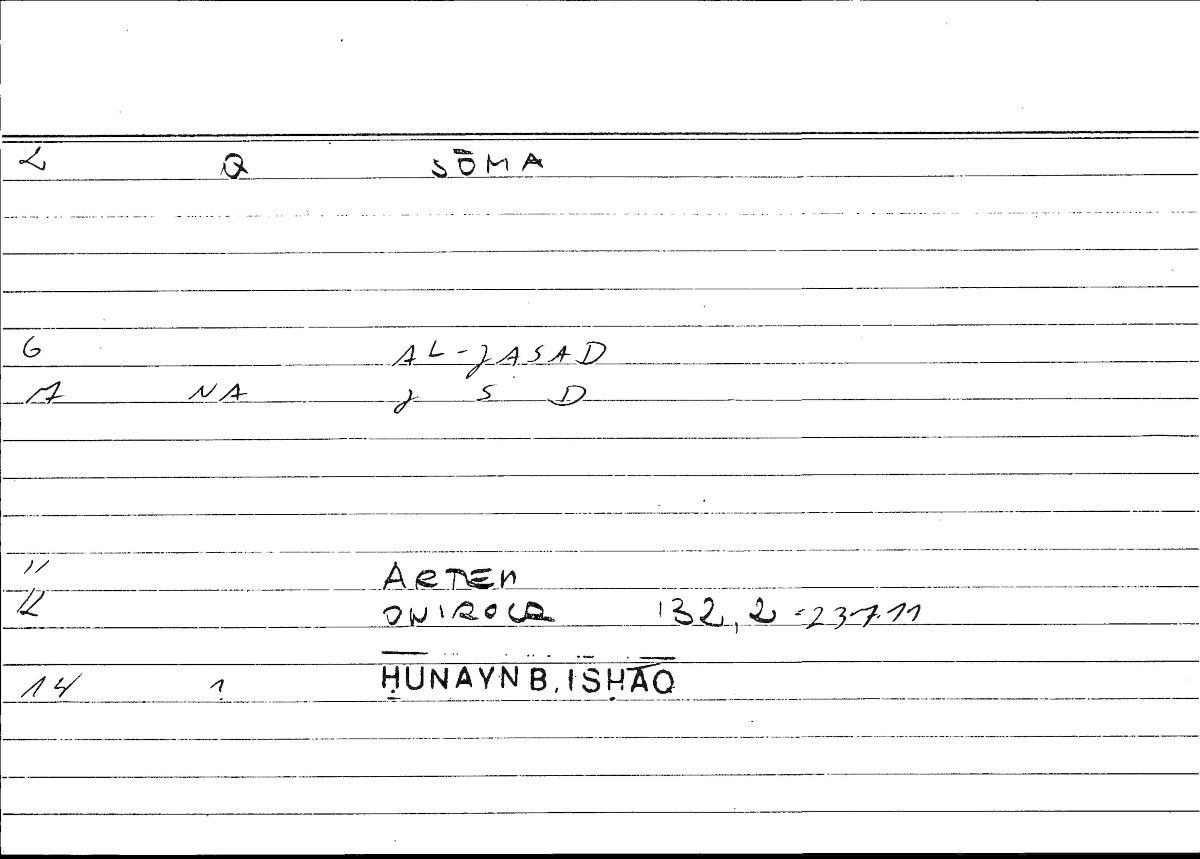 2 Q SŌMA
6 AL-JASAD
7 NA J S D
11 ARTEM
12 ONIROCR 132,2 = 237.11
14 ? ḤUNAYN B. ISḤĀQ